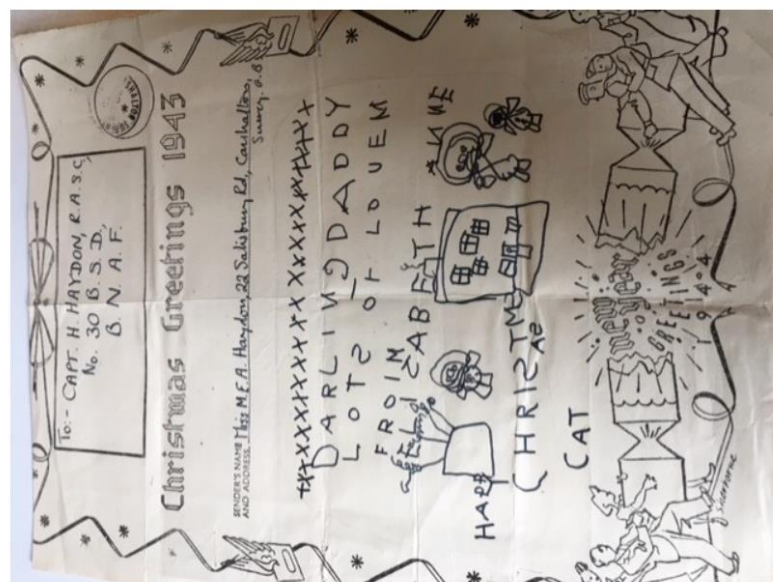 To:- CAPT. H. HAYDON, R.A.S.C,
No. 30 B.S.D.,
B.N.A.F.
Christmas Greetings 1943
SENDER'S NAME Miss M.E.A. Haydon, 22 Salisbury Rd, Carshalton,
AND ADDRESS. Surrey.
XXXXXXXXXXXXXXXXXXXXX
DARLING DADDY
LOTS OF LOUEM
FROM
ELISABETH
HAPP
CHRISTMAS
CAT
new year
GREETINGS
1944